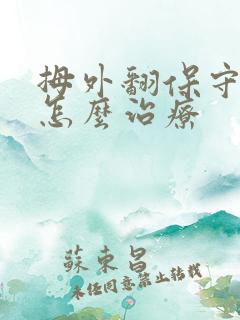 拇外翻保守
怎麼治療
蘇東昌
未任同意禁止转载